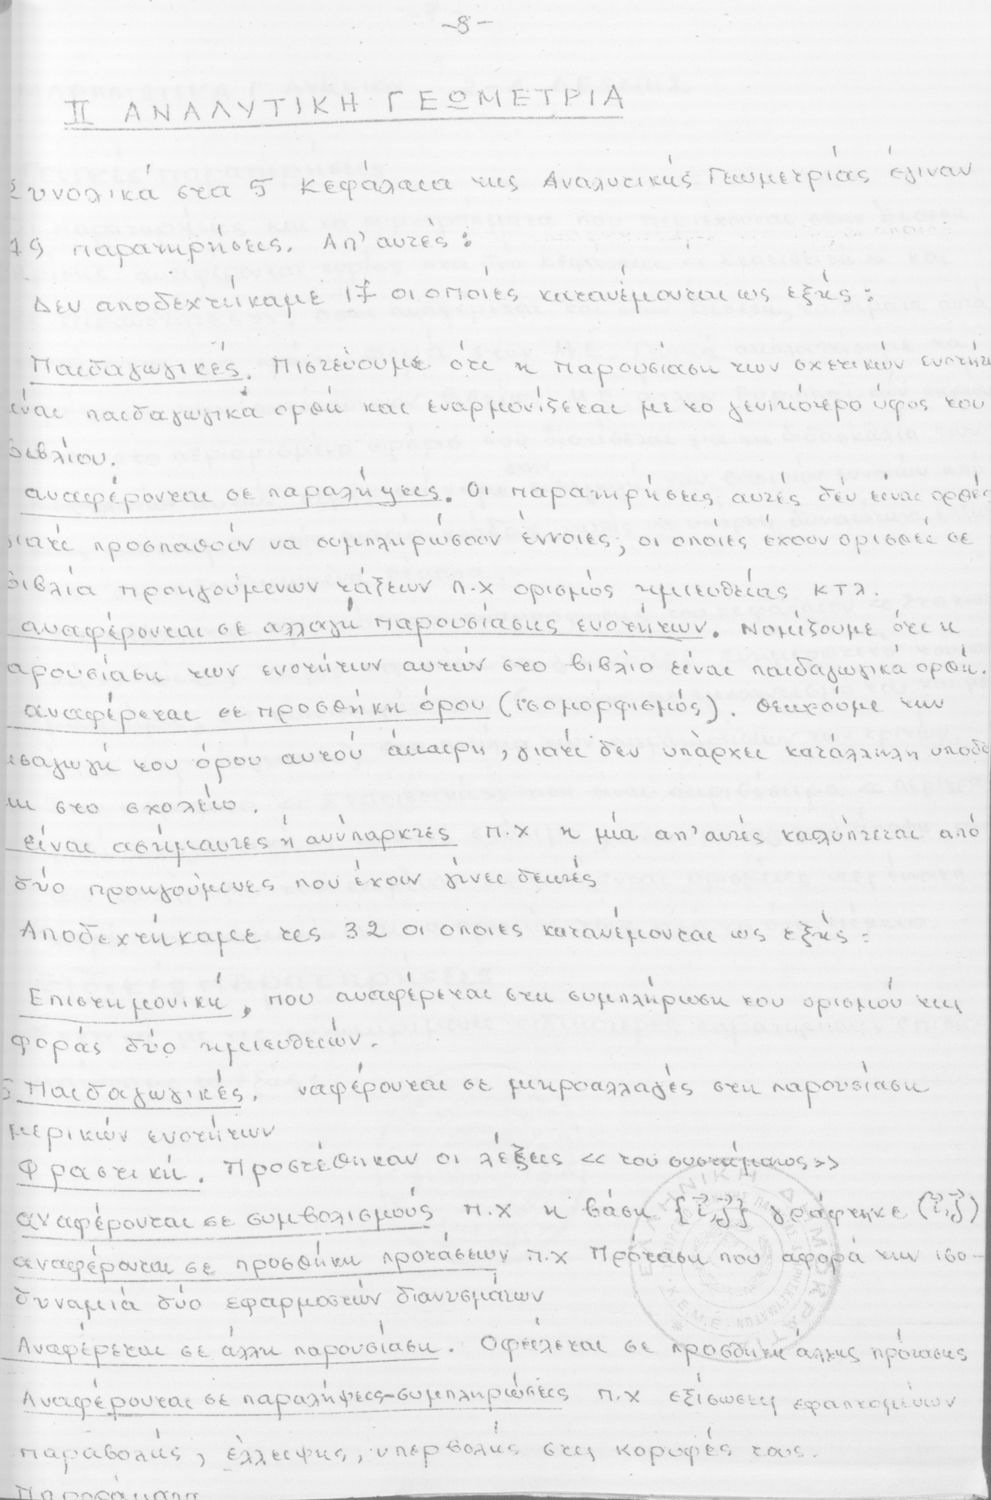 -8-
II ΑΝΑΛΥΤΙΚΗ ΓΕΩΜΕΤΡΙΑ
Συνολικά στα 5 Κεφάλαια της Αναλυτικής Γεωμετρίας έγιναν
παρατηρήσεις. Απ' αυτές:
Δεν αποδεχτήκαμε 17 οι οποίες κατανέμονται ως εξής:
Παιδαγωγικές. Πιστεύουμε ότι η παρουσίαση των σχετικών ενοτήτ
ίναι παιδαγωγικά ορθή και εναρμονίζεται με το γενικότερο ύφος του
βιβλίου.
αναφέρονται σε παραλήψεις. Οι παρατηρήσεις αυτές δέν είναι ορθές
γιατί προσπαθούν να συμπληρώσουν έννοιες, οι οποίες έχουν ορισθεί σε
βιβλία προηγούμενων τάξεων π.χ ορισμός ημιευθείας κτλ.
αναφέρονται σε αλλαγή παρουσίασης ενοτήτων. Νομίζουμε ότι η
αρουσίαση των ενοτήτων αυτών στο βιβλίο είναι παιδαγωγικά ορθή.
αναφέρεται σε προσθήκη όρου (ισομορφισμός). Θεωρούμε την
ισαγωγή του όρου αυτού άκαιρη, γιατί δεν υπάρχει κατάλληλη υποδο
μη στο σχολείο.
είναι ασήμαντες ή ανύπαρκτες π.χ η μία απ' αυτές καλύπτεται από
δύο προηγούμενες που έχουν γίνει δεκτές
Αποδεχτήκαμε τις 32 οι οποίες κατανέμονται ως εξής:
Επιστημονική, που αναφέρεται στη συμπλήρωση του ορισμού της
φοράς δύο ημιευθειών.
Παιδαγωγικές. ναφέρονται σε μικροαλλαγές στη παρουσίαση
μερικών ενοτήτων
Φραστική. Προστέθηκαν οι λέξεις «του συστήματος»
αναφέρονται σε συμβολισμούς π.χ η βάση {i⃗,j⃗} γράφτηκε (i⃗,j⃗)
αναφέρονται σε προσθήκη προτάσεων π.χ Πρόταση που αφορά την ισο-
δυναμία δύο εφαρμοστών διανυσμάτων
Αναφέρεται σε άλλη παρουσίαση. Οφείλεται σε προσθήκη άλλης πρότασης
Αναφέρονται σε παραλήψεις-συμπληρώσεις π.χ εξίσωσεις εφαπτομένων
παραβολής, έλλειψης, υπερβολής στις κορυφές τους.
ΕΛΛΗΝΙΚΗ ΔΗΜΟΚΡΑΤΙΑ
Κ.Ε.Μ.Ε.